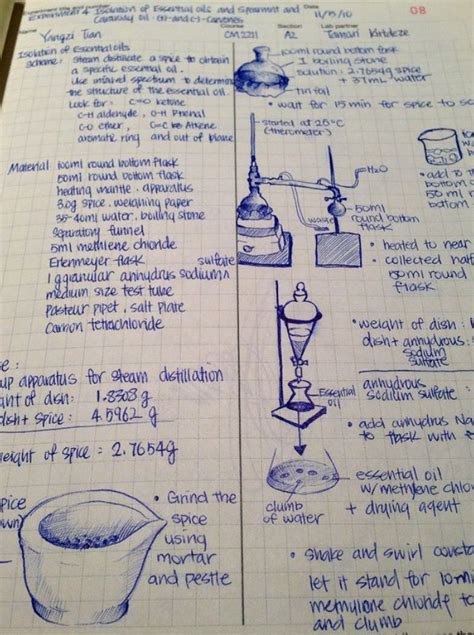 Experiment title and number
Experiment 4 Isolation of Essential oils and Spearmint and
Caraway oil: (+)-and(-)-Carvones
Date
11/15/10
08
Name
Yangzi Tian
Course
CM2211
Section
A2
Lab partner
Tamari Kirtdeze
Isolation of Essential oils
scheme: Steam distillate a spice to obtain
a specific essential oil.
Use infrared spectrum to determine
the structure of the essential oil.
Look for: C=O ketone
C-H aldehyde, O-H Phenol
C-O ether, C=C bc Alkene
aromatic ring and out of plane
Material: 100ml round bottom flask
50ml round bottom flask
heating mantle, apparatus
3.0g spice, weighing paper
35-40ml water, boiling stone
Separatory funnel
5ml methlene chloride
Erlenmeyer flask
sulfate
1g granular anhydrus sodium^
medium size test tube
Pasteur pipet, salt plate
Carbon tetrachloride
up apparatus for steam distillation
ght of dish: 1.8308 g
dish + spice: 4.5962 g
weight of spice = 2.7654g
spice
• Grind the
spice
using
mortar
and pestle
100ml round bottom flask
1 boiling stone
solution: 2.7654g spice
+ 37mL water
tin foil
• wait for 15 min for spice to
started at 25°C
(thermometer)
H2O
waste
50ml
round bottom
flask
• add to
bottom
50 ml
bottom
• heated to near
• collected half
50ml round
flask
Essential
oil
• weight of dish:
dish + anhydrous:
sodium
sulfate
anhydrous
sodium sulfate
• add anhydrus Na
to flask with
essential oil
w/ methylene chlor
+ drying agent
clumb
of water
• shake and swirl consta
let it stand for 10min
methylene chloride to
and clumb